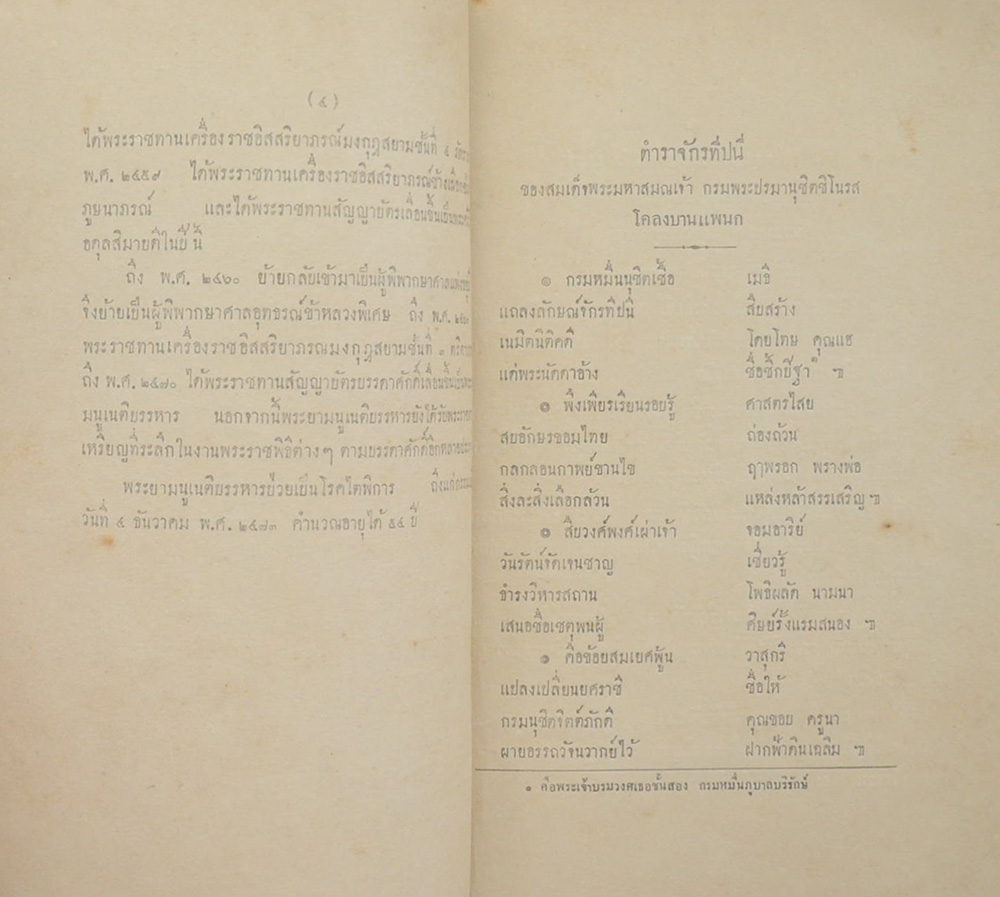 (๔)
ได้พระราชทานเครื่องราชอิสสริยาภรณ์มงกุฎสยามชั้นที่ ๔
พ.ศ. ๒๔๕๙ ได้พระราชทานเครื่องราชอิสสริยาภรณ์ช้างเผือก
ภูษนาภรณ์ และได้พระราชทานสัญญาบัตรเลื่อนขึ้นเป็น
อดุลสีมายติในปีนี้
ถึง พ.ศ. ๒๔๖๐ ย้ายกลับเข้ามาเป็นผู้พิพากษาศาลแพ่ง
จึงย้ายเป็นผู้พิพากษาศาลอุทธรณ์ข้าหลวงพิเศษ ถึง พ.ศ.
พระราชทานเครื่องราชอิสสริยาภรณมงกุฎสยามชั้นที่ ๓
ถึง พ.ศ. ๒๔๗๐ ได้พระราชทานสัญญาบัตรบรรดาศักดิ์เลื่อนขึ้น
มนูเนติบรรหาร นอกจากนี้พระยามนูเนติบรรหารยังได้รับ
เหรียญที่ระลึกในงานพระราชพิธีต่างๆ ตามบรรดาศักดิ์อีกหลาย
พระยามนูเนติบรรหารป่วยเป็นโรคไตพิการ
วันที่ ๔ ธันวาคม พ.ศ. ๒๔๗๓ คำนวณอายุได้ ๕๔ ปี
ตำราจักรทีปนี
ของสมเด็จพระมหาสมณเจ้า กรมพระปรมานุชิตชิโนรส
โคลงบานแพนก
๑ กรมหมื่นนุชิตเชื้อ เมธี
แถลงลักษณ์จักรทีปนี สืบสร้าง
เนมิตนิติคดี โดยโทษ คุณแฮ
แด่พระนัดดาอ้าง ชื่อชักยีฐา๑ ๚
๑ พึ่งเพียรเรียนรอบรู้ ศาสตรไสย
สบอักษรขอมไทย ถ่องถ้วน
กลกลอนกาพย์ขานไข ฤๅพรอก พรางพ่อ
สิ่งละสิ่งเลือกล้วน แหล่งหล้าสรรเสริญ ๚
๑ สืบวงศ์พงศ์เผ่าเจ้า จอมอารีย์
วันรัตน์จัดเจนชาญ เชี่ยวรู้
ธำรงวิหารสถาน โพธิผลัด นามนา
เสนอชื่อเชตุพนผู้ ศิษย์รั้งแรมสนอง ๚
๑ คือข้อยสมเยศผู้น วาสุกรี
แปลงเปลี่ยนยศราชี ชื่อให้
กรมนุชิตจิตต์ภักดี คุณชอบ ครูนา
ผายอรรถวัจนวากย์ไว้ ฝากฟ้าดินเฉลิม ๚
๑ คือพระเจ้าบรมวงศเธอชั้นสอง กรมหมื่นภูบาลบริรักษ์